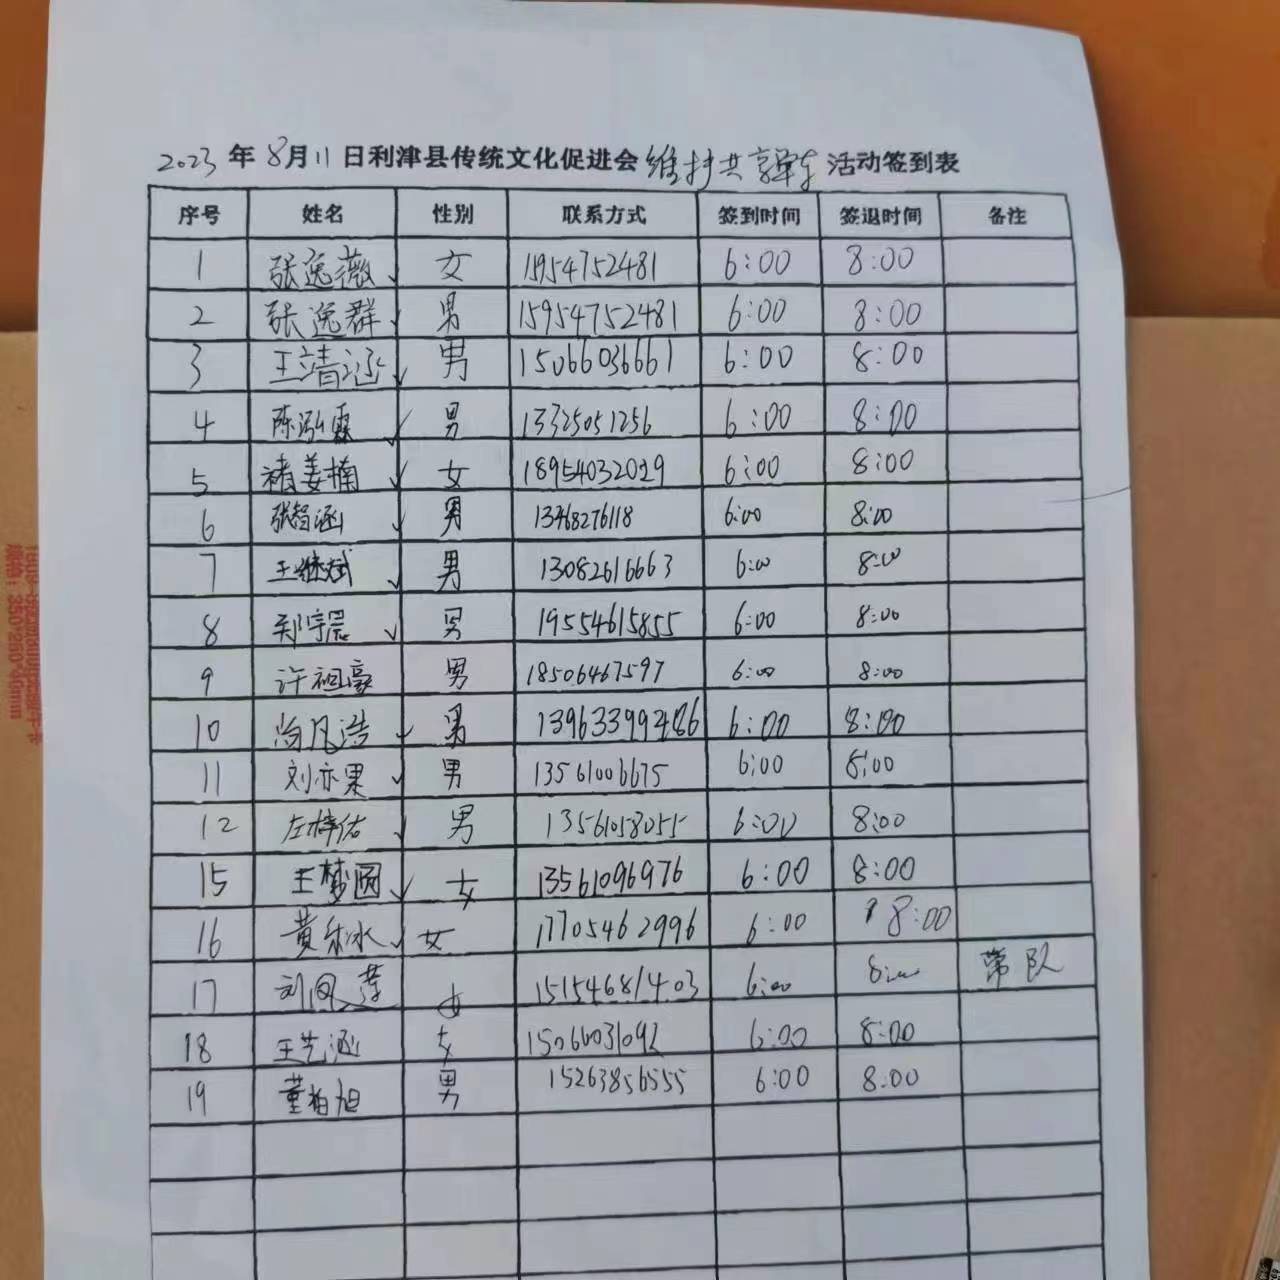 2023年8月11日利津县传统文化促进会维护共享单车活动签到表
序号 姓名 性别 联系方式 签到时间 签退时间 备注
1 张逸薇✓ 女 15954752481 6:00 8:00
2 张逸群✓ 男 15954752481 6:00 8:00
3 王靖涵✓ 男 15066036661 6:00 8:00
4 陈泓霖✓ 男 13325051256 6:00 8:00
5 褚姜楠✓ 女 18954032029 6:00 8:00
6 张智涵✓ 男 13468276118 6:00 8:00
7 王继斌✓ 男 13082616663 6:00 8:00
8 郑宇晨✓ 男 19554615855 6:00 8:00
9 许祖豪 男 18506467597 6:00 8:00
10 尚凡浩✓ 男 6:00 8:00
11 刘亦果✓ 男 13561006675 6:00 8:00
12 左梓佑✓ 男 13561058055 6:00 8:00
15 王梦圆✓ 女 13561096976 6:00 8:00
16 黄 冰✓ 女 17705462996 6:00 8:00
17 刘凤 女 15154681403 6:00 8:00 带队
18 王艺涵 女 6:00 8:00
19 董柏旭 男 15263856555 6:00 8:00